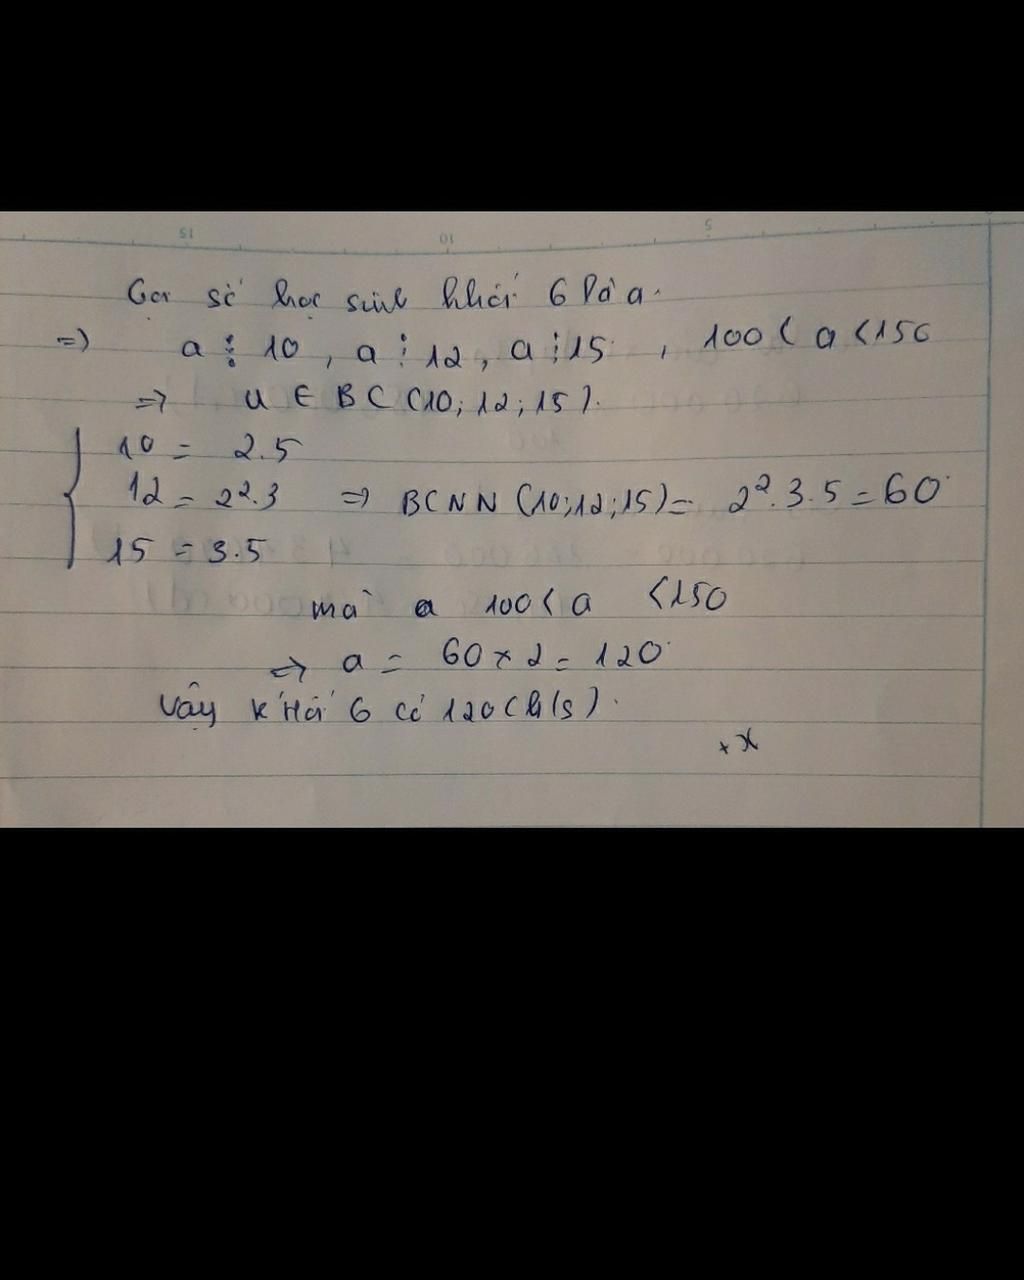 15 10 5
Gọi số học sinh khối 6 là a.
=> a ⋮ 10, a ⋮ 12, a ⋮ 15, 100 < a < 150
=> a ∈ BC (10; 12; 15).
10 = 2.5
12 = 2².3 => BCNN (10;12;15) = 2².3.5 = 60
15 = 3.5
mà a 100 < a < 150
=> a = 60 x 2 = 120
Vậy khối 6 có 120 (h/s).
+ x